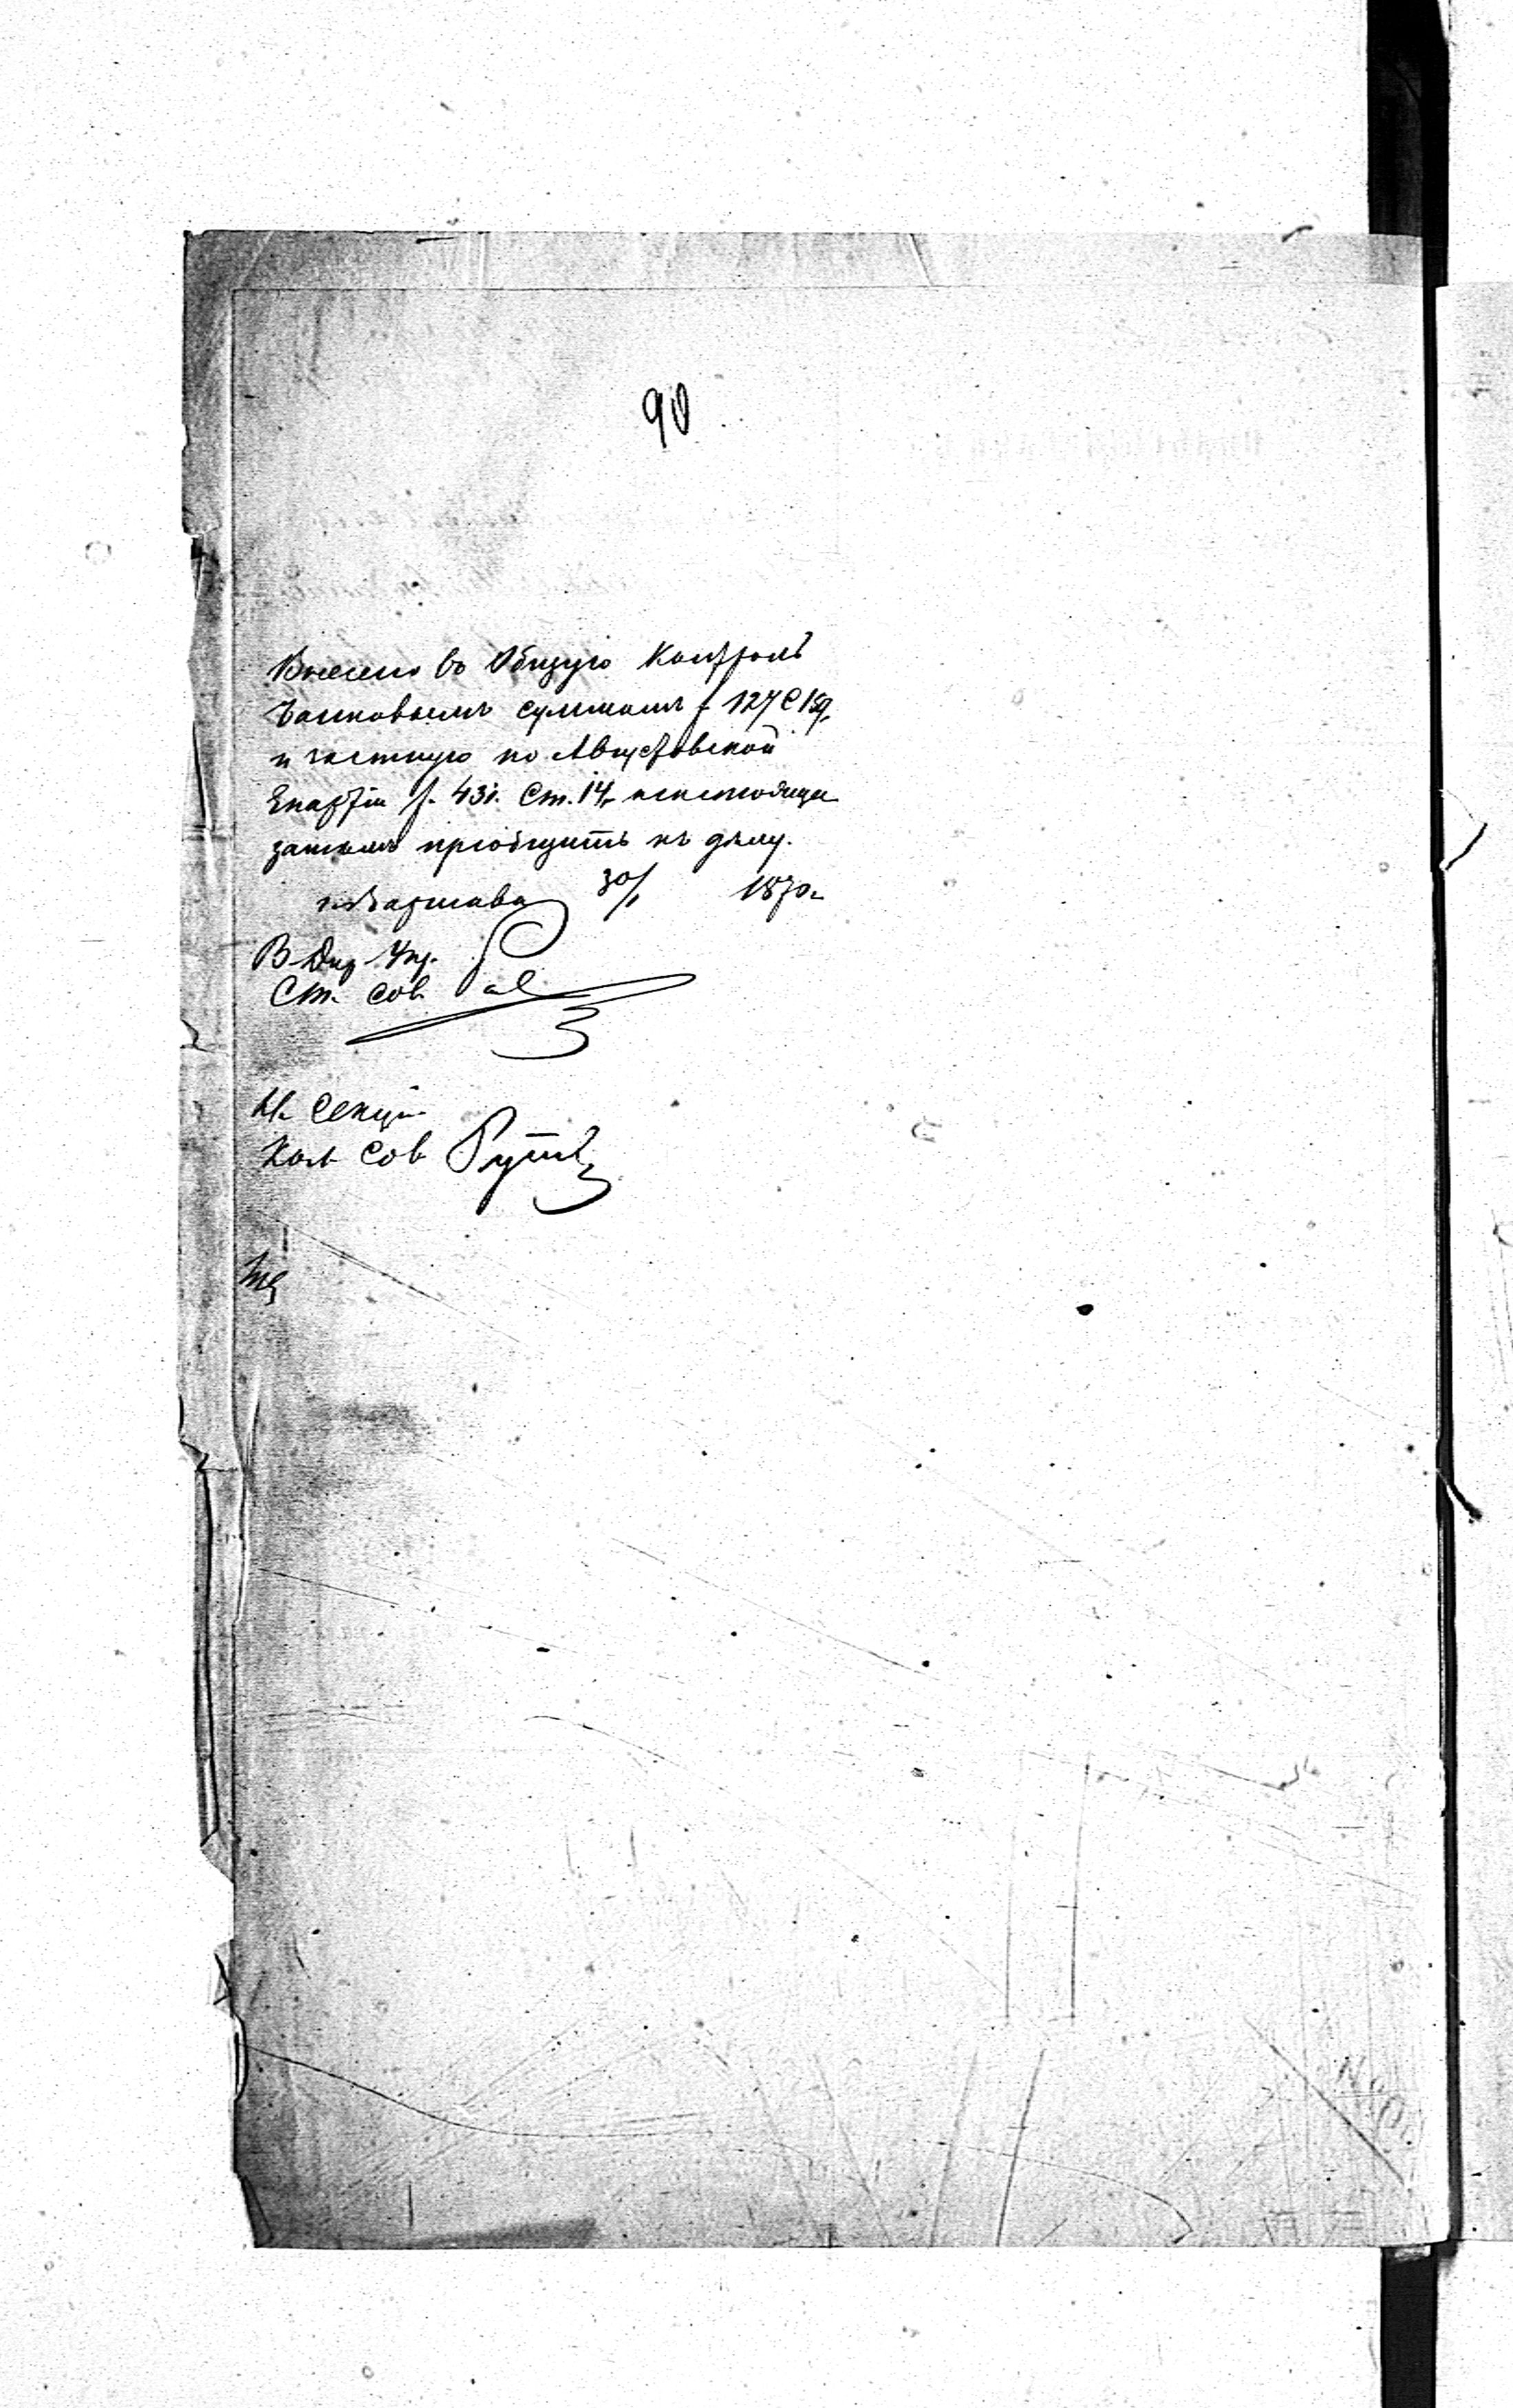 90
Внесено въ Общую Контроль
Банковымъ суммамъ f 127 С 159,
и частную по Августовской
Епархіи f. 431. Ст. 14,
затѣмъ пріобщить къ дѣлу.
Варшава 30/1 1870 г.
В. Дир. Упр.
Ст. Сов.
Н. Секціи
Кол. Сов.